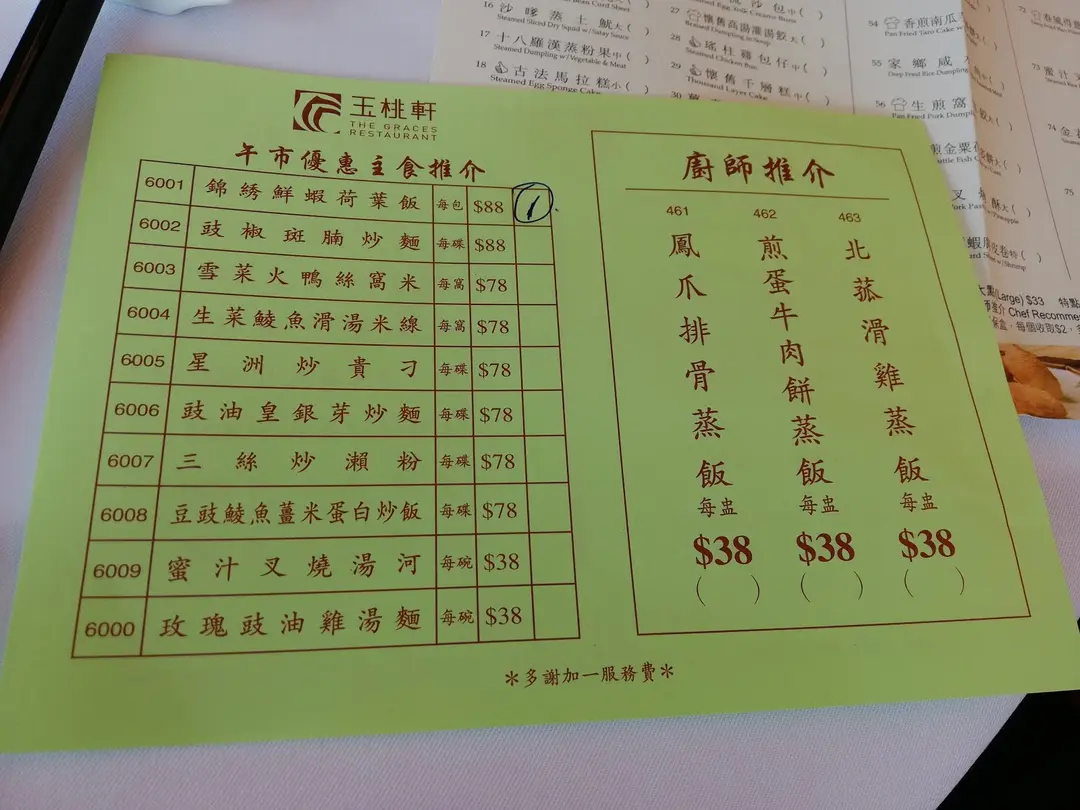 16 沙嗲蒸土魷大( )
Steamed Sliced Dry Squid w/ Satay Sauce
17 十八羅漢蒸粉果中( )
Steamed Dumpling w/ Vegetable & Meat
18 古法馬拉糕小( )
Steamed Egg Sponge Cake
27 懷舊高湯灌湯餃大( )
28 瑤柱雞包仔中( )
Steamed Chicken Bun
29 懷舊千層糕中( )
Thousand Layer Cake
30
54 香煎南瓜
Pan Fried Taro Cake w/
55 家鄉咸
Deep Fried Rice Dumpling
56 生煎窩
Pan Fried Pork Dumpl
72
73 蜜汁叉
74
75
(Large) $33 特點
Chef Recomme
每個收取$2
玉桃軒
THE GRACES
RESTAURANT
午市優惠主食推介
6001 錦綉鮮蝦荷葉飯 每包 $88 1
6002 豉椒斑腩炒麵 每碟 $88
6003 雪菜火鴨絲窩米 每窩 $78
6004 生菜鯪魚滑湯米線 每窩 $78
6005 星洲炒貴刁 每碟 $78
6006 豉油皇銀芽炒麵 每碟 $78
6007 三絲炒瀨粉 每碟 $78
6008 豆豉鯪魚薑米蛋白炒飯 每碟 $78
6009 蜜汁叉燒湯河 每碗 $38
6000 玫瑰豉油雞湯麵 每碗 $38
廚師推介
461 鳳爪排骨蒸飯 每盅 $38 ( )
462 煎蛋牛肉餅蒸飯 每盅 $38 ( )
463 北菰滑雞蒸飯 每盅 $38 ( )
*多謝加一服務費*